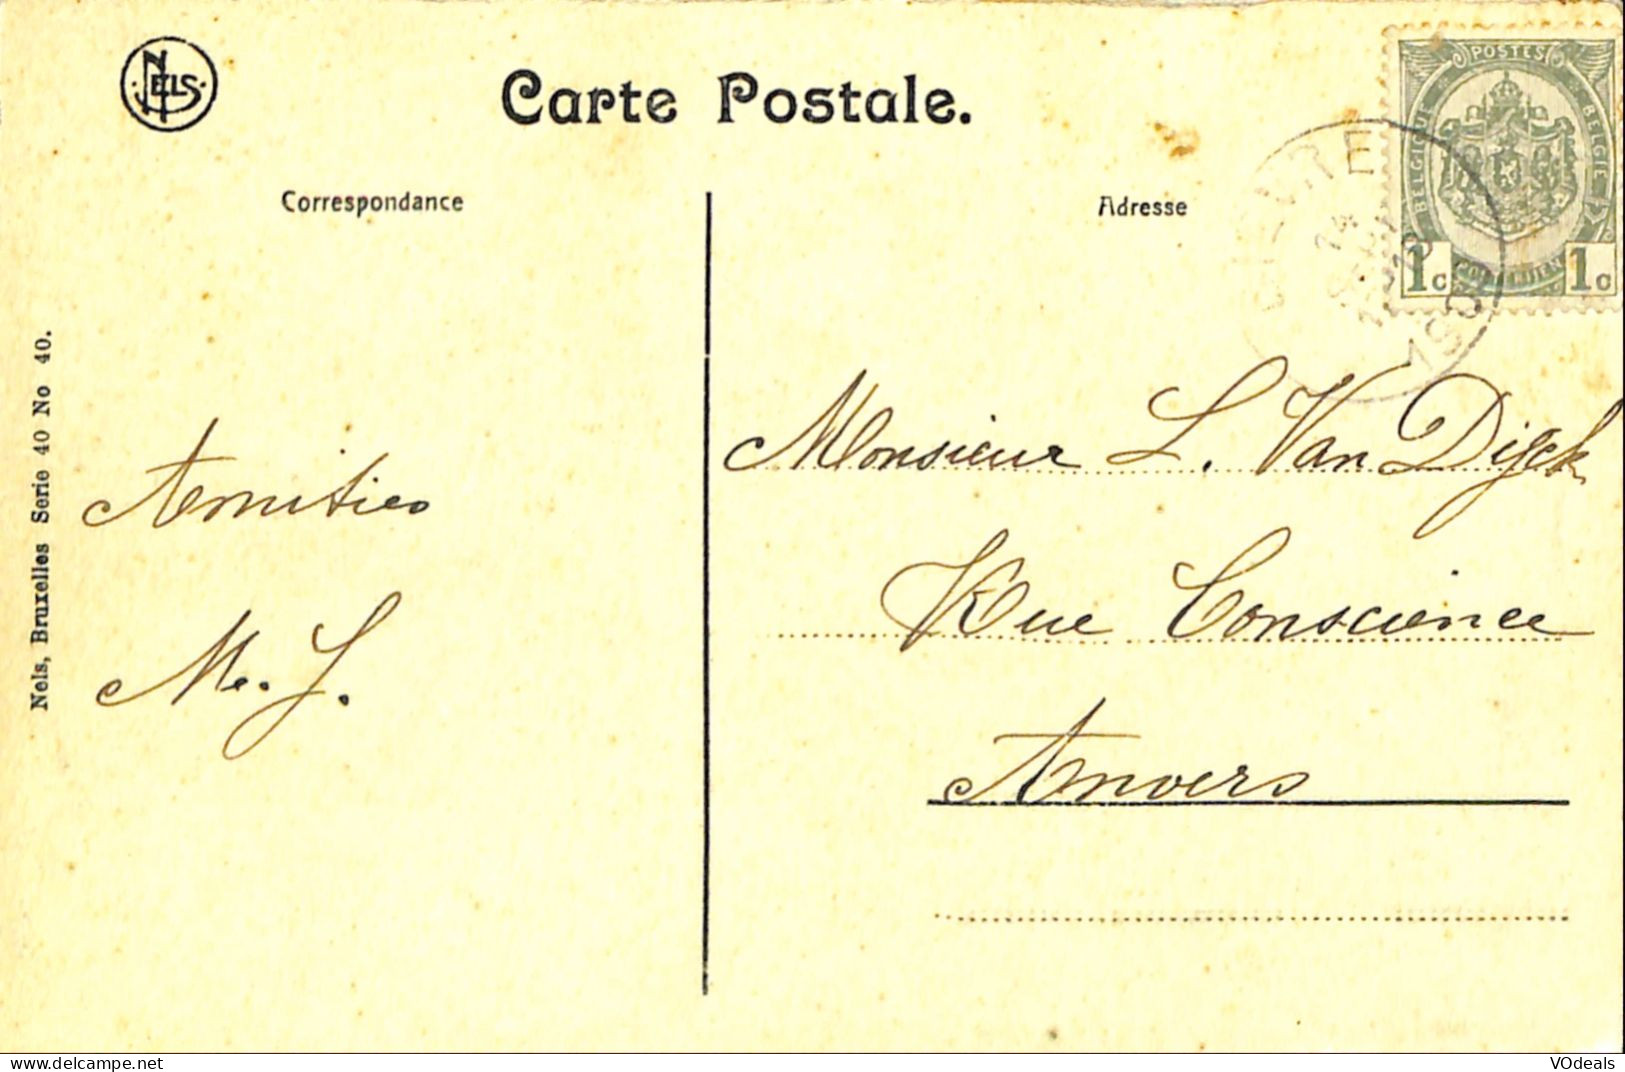 NELS
Carte Postale.
POSTES
BELGIQUE
BELGIE
1c
1c
Correspondance
Adresse
14
Nels, Bruxelles Serie 40 No 40.
Monsieur L. Van Dijck
Amitiés
Rue Conscience
M. J.
Anvers
delcampe.net
VOdeals